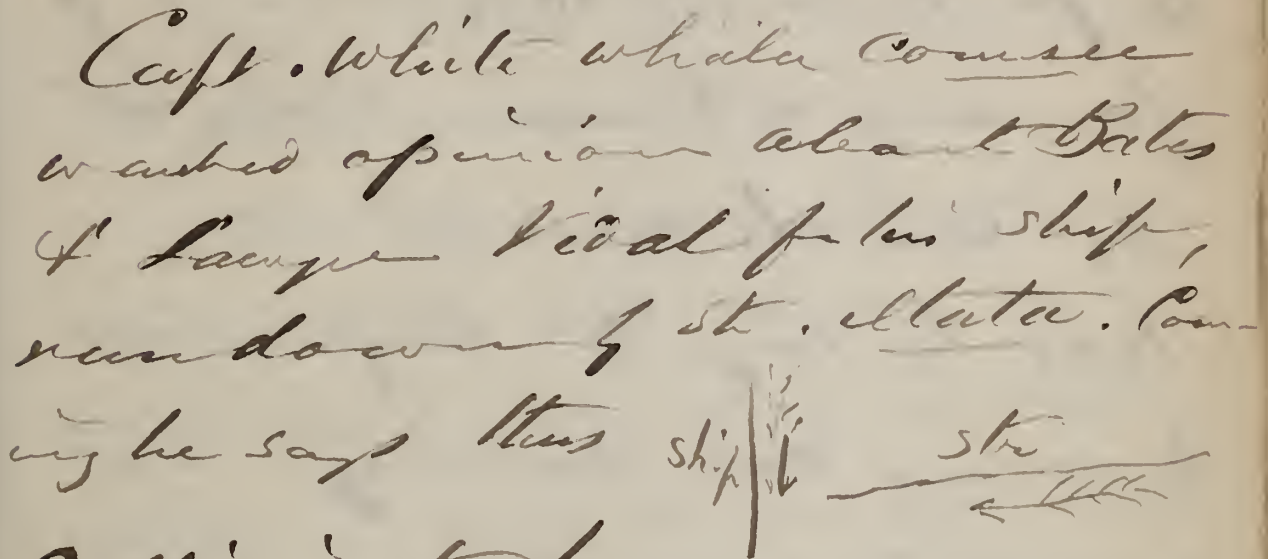 Capt. White whaler
wanted opinion about Bates
& Sawyer for his ship,
run down by str. Mata. Com-
ing he says thus ship str